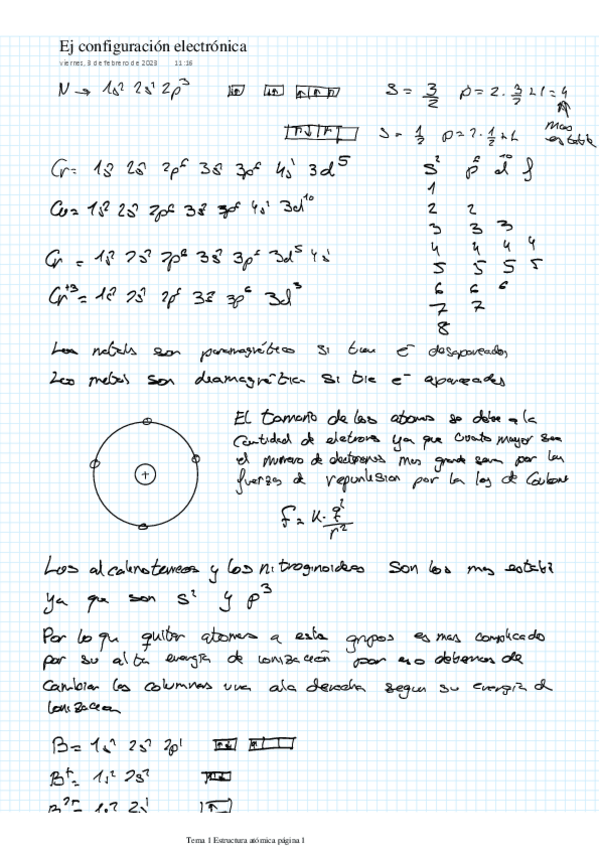 Ej configuración electrónica
viernes, 8 de febrero de 2023 11:16
N → 1s² 2s² 2p³ S = 3/2 p = 2 · 3/2 + 1 = 4
mas
estable
S = 1/2 p = 2 · 1/2 + 1
Cr = 1s² 2s² 2p⁶ 3s² 3p⁶ 4s¹ 3d⁵ s² p⁶ d¹⁰ f
1
Cu = 1s² 2s² 2p⁶ 3s² 3p⁶ 4s¹ 3d¹⁰ 2 2
3 3 3
Cr = 1s² 2s² 2p⁶ 3s² 3p⁶ 3d⁵ 4s¹ 4 4 4 4
5 5 5 5
Cr⁺³ = 1s² 2s² 2p⁶ 3s² 3p⁶ 3d³ 6 6 6
7 7
8
Los metales son paramagnéticos si tien e⁻ desapareados
Los metales son diamagnéticos si tie e⁻ apareados
El tamaño de los atomos se debe a la
Cantidad de eletrons ya que cuanto mayor sea
el numero de electrones mas grande seran por las
fuerzas de repunlesion por la ley de Coulomb
+
f = K · q²/r²
Los alcalinoterreos y los nitroginoideos son los mas establ
ya que son s² y p³
Por lo que quitar atomos a estos grupos es mas complicado
por su alta energía de ionización por eso debemos de
Cambiar las columnas una a la derecha segun su energia de
Ionizacion
B = 1s² 2s² 2p¹
B⁺ = 1s² 2s²
B²⁺ = 1s² 2s¹
Tema 1 Estructura atómica página 1